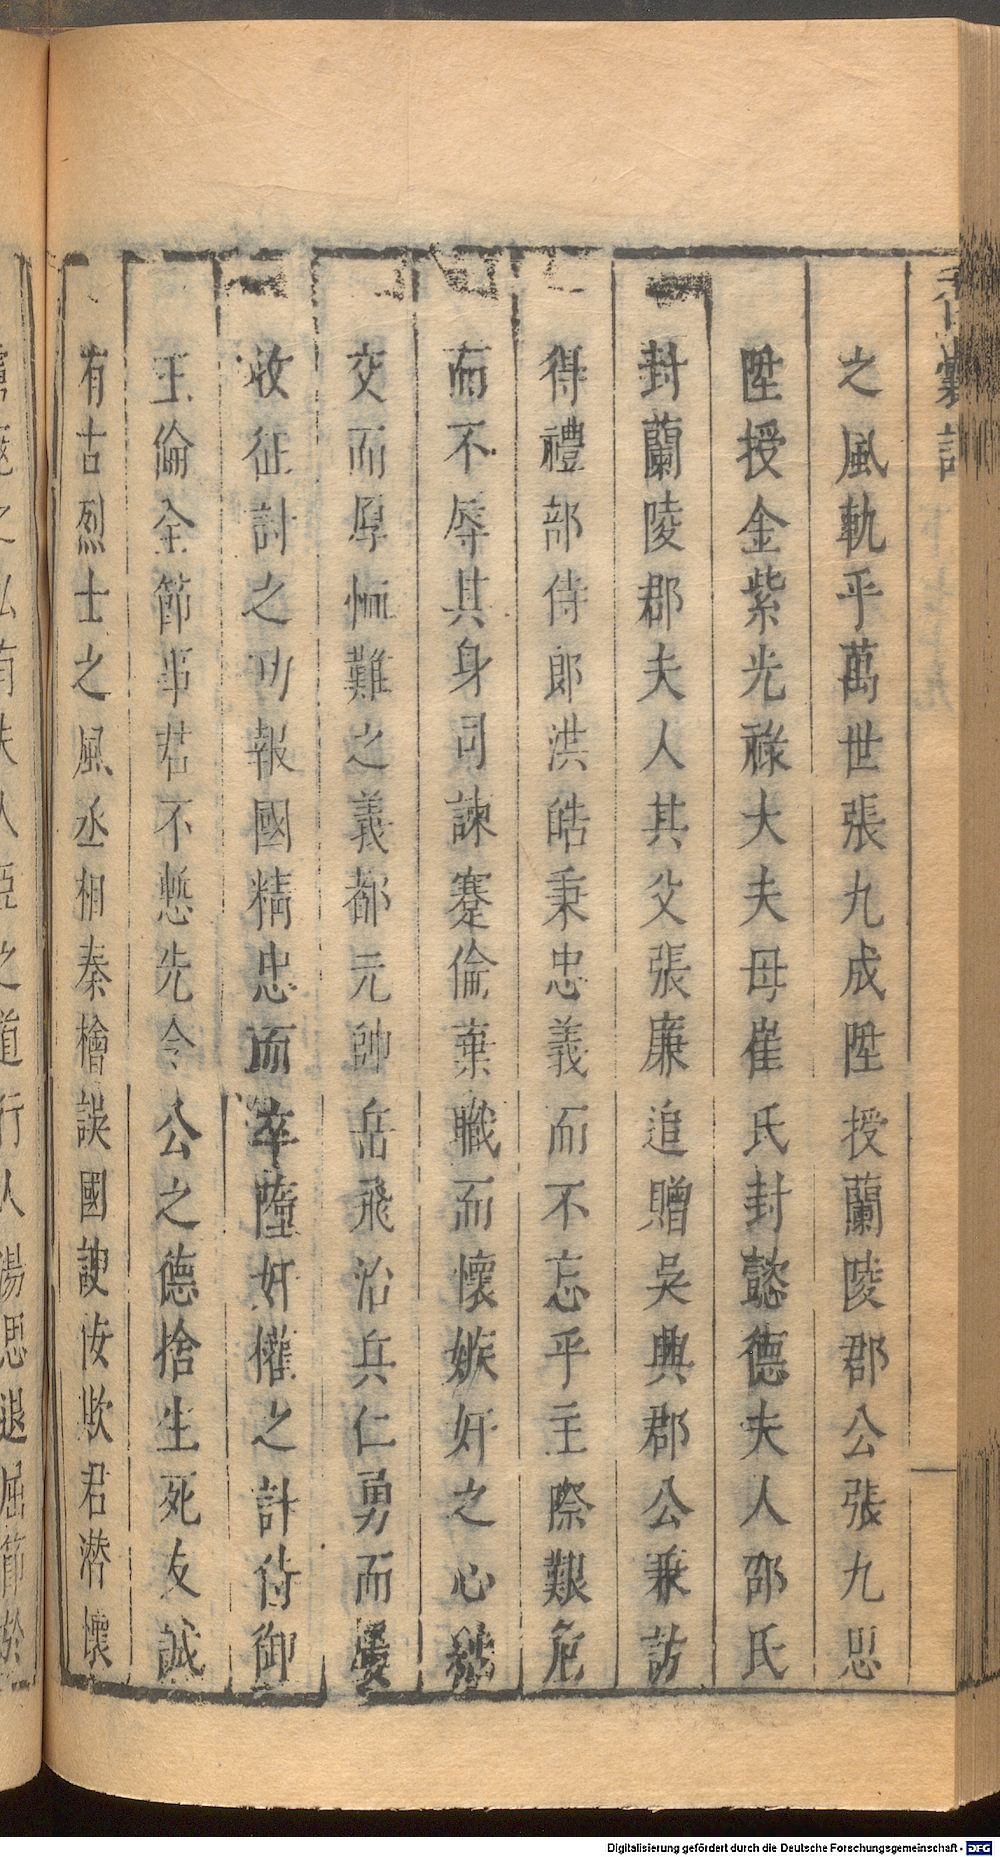 之風軌乎萬世張九成陞授蘭陵郡公張九思
陞授金紫光祿大夫母崔氏封懿德夫人邵氏
封蘭陵郡夫人其父張廉追贈吳興郡公兼訪
得禮部侍郎洪皓秉忠義而不忘乎主際艱危
而不辱其身司諫蹇倫棄職而懷嫉奸之心
交而厚恤難之義都元帥岳飛治兵仁勇而
收征討之功報國精忠而卒墮奸權之計侍御
王倫全節事君不愆先令公之德捨生死友誠
有古烈士之風丞相秦檜誤國諛佞欺君潛懷
Digitalisierung gefördert durch die Deutsche Forschungsgemeinschaft - DFG